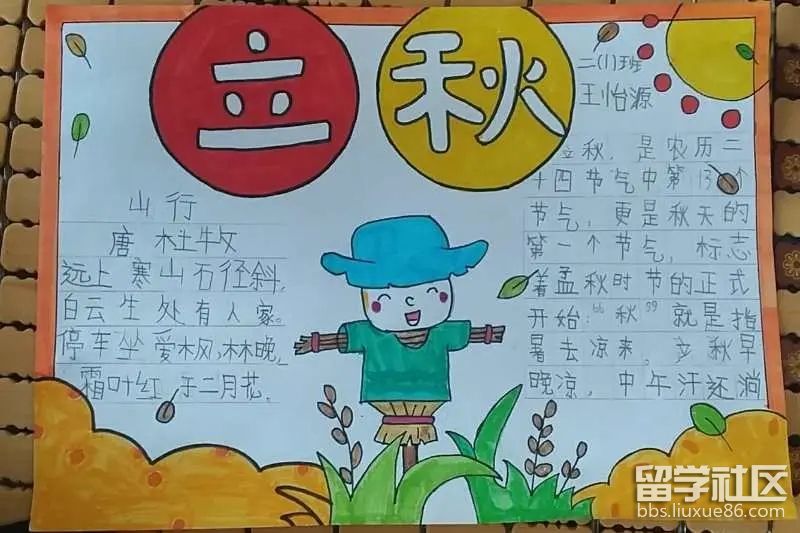 立秋
二(1)班
王怡源
山行
唐 杜牧
远上寒山石径斜,
白云生处有人家。
停车坐爱枫林晚,
霜叶红于二月花。
立秋,是农历二
十四节气中第13个
节气,更是秋天的
第一个节气,标志
着孟秋时节的正式
开始:“秋”就是指
暑去凉来。立秋早
晚凉,中午汗还淌
留学社区
bbs.liuxue86.com